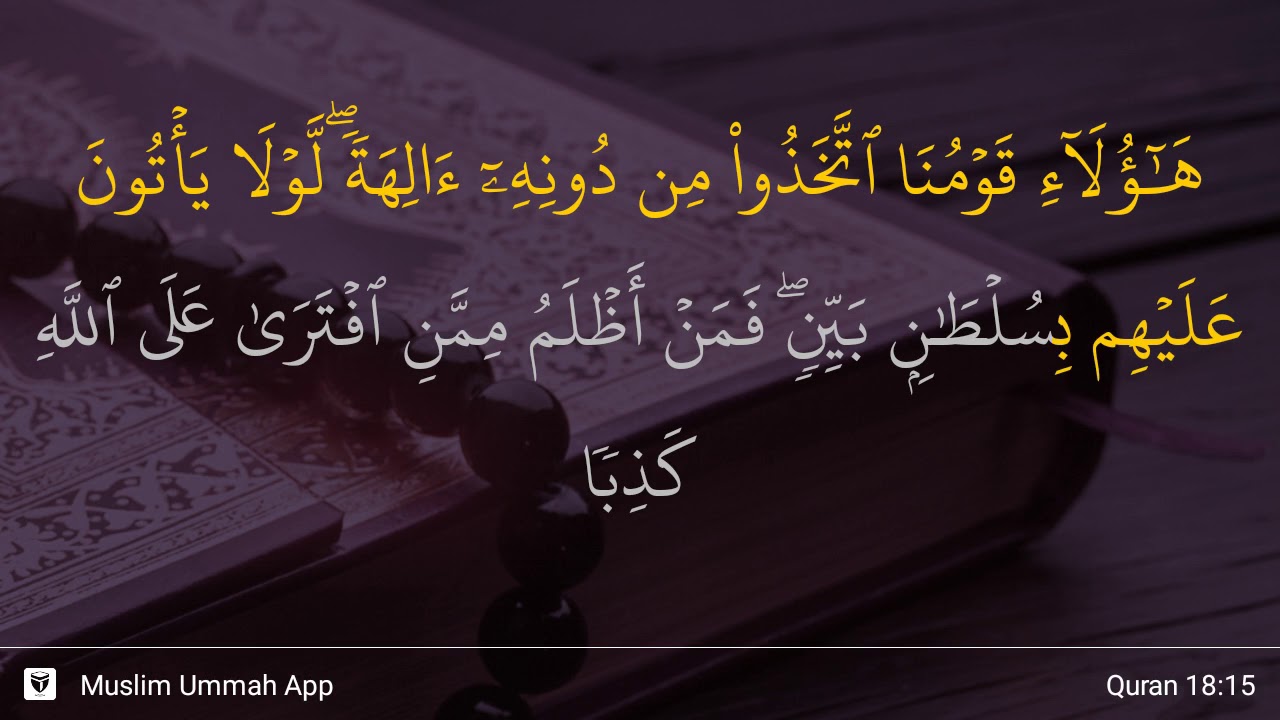 هَـٰٓؤُلَآءِ قَوْمُنَا ٱتَّخَذُوا۟ مِن دُونِهِۦٓ ءَالِهَةًۭ ۖ لَّوْلَا يَأْتُونَ
عَلَيْهِم بِسُلْطَـٰنٍۭ بَيِّنٍۢ ۖ فَمَنْ أَظْلَمُ مِمَّنِ ٱفْتَرَىٰ عَلَى ٱللَّهِ
كَذِبًۭا
Muslim Ummah App
Quran 18:15